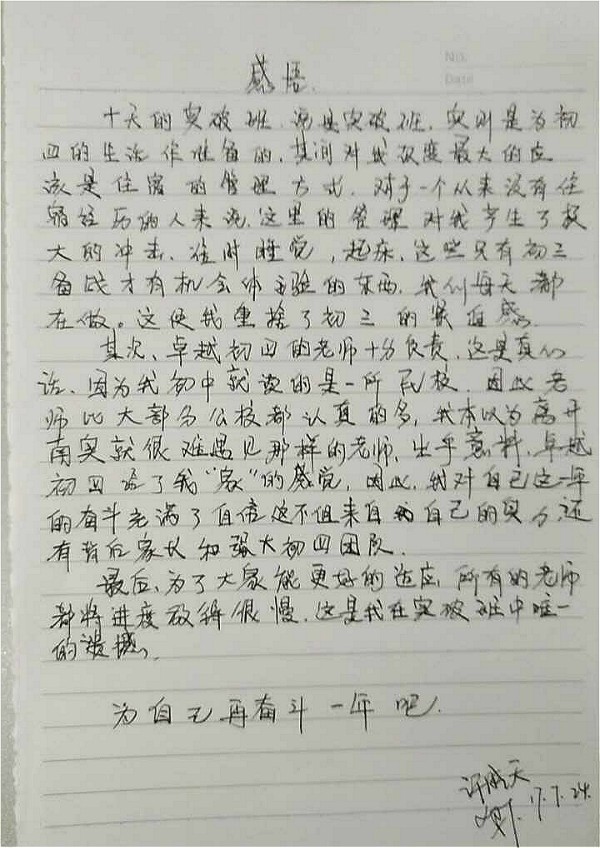 No.
Date
感悟.
十天的突破班.说是突破班.实则是为初
四的生活作准备的,其间对我改变最大的应
该是住宿的管理方式.对于一个从来没有住
宿经历的人来说,这里的管理对我产生了极
大的冲击.准时睡觉,起床,这些只有初三
备战才有机会体验的东西.我们每天都
在做。这使我重拾了初三的紧迫感.
其次、卓越初四的老师十分负责,这是真心
话.因为我初中就读的是一所民校.因此老
师比大部分公校都认真的多,我本以为离开
南实就很难遇见那样的老师,出乎意料.卓越
初四给了我“家”的感觉,因此,我对自己这一年
的奋斗充满了自信这不但来自为自己的实力,还
有背后家长和强大初四团队.
最后,为了大家能更好的适应,所有的老师
都将进度放得很慢.这是我在突破班中唯一
的遗憾。
为自己再奋斗一年吧.
许成天
17.7.24.